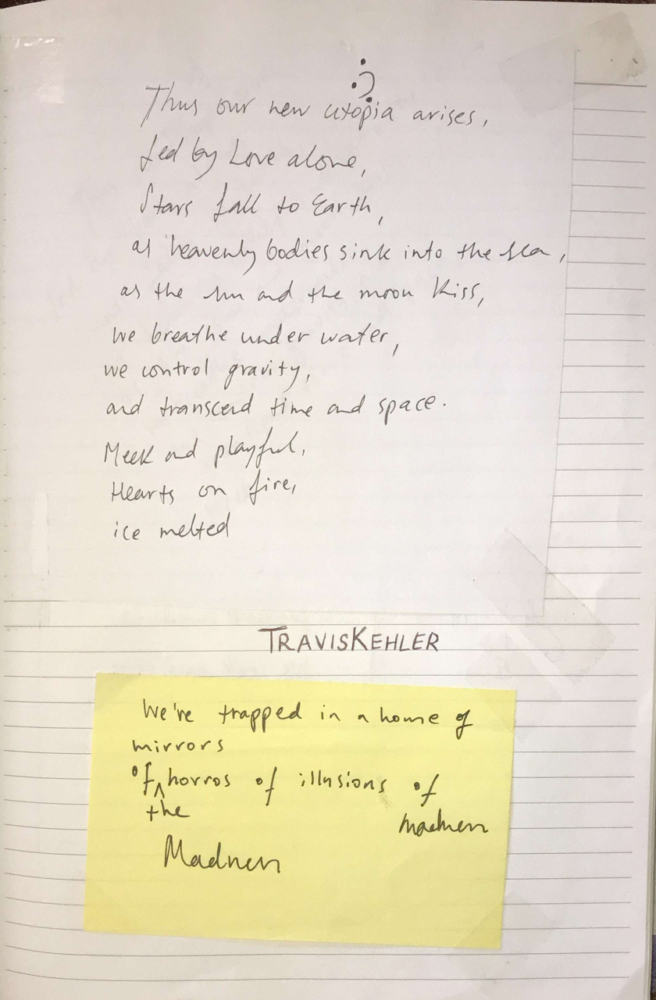 :)
Thus our new utopia arises,
Led by Love alone,
Stars fall to Earth,
as heavenly bodies sink into the sea,
as the sun and the moon kiss,
we breathe under water,
we control gravity,
and transcend time and space.
Meek and playful,
Hearts on fire,
ice melted
TRAVISKEHLER
We're trapped in a house of
mirrors
of the horros of illusions of
madness
Madness